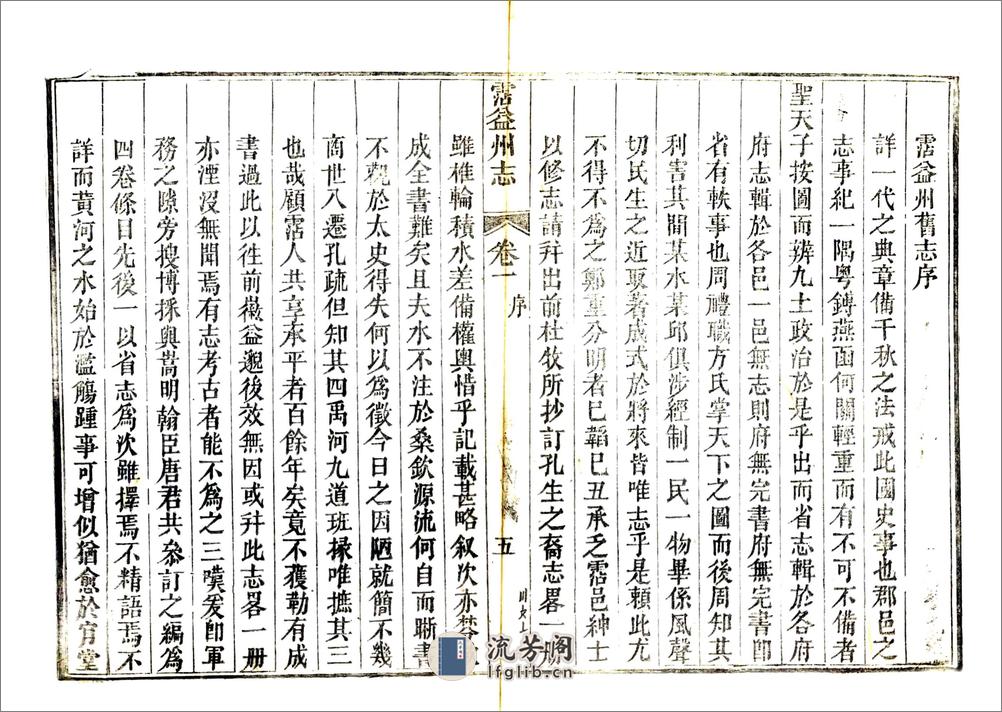 霑益州舊志序
詳一代之典章備千秋之法戒此國史事也郡邑之
志事紀一隅粵鎛燕函何關輕重而有不可不備者
聖天子按圖而辨九土政治於是乎出而省志輯於各府
府志輯於各邑一邑無志則府無完書府無完書卽
省有軼事也周禮職方氏掌天下之圖而後周知其
利害其間某水某邱俱涉經制一民一物畢係風聲
切民生之近取著成式於將來皆唯志乎是賴此尤
不得不爲之鄭重分明者巳韜巳丑承乏霑邑紳士
以修志請幷出前杜牧所抄訂孔生之裔志畧一
霑益州志 卷一 序 五
雖椎輪積水差備權輿惜乎記載甚略叙次亦
成全書難矣且夫水不注於桑欽源流何自而晰書
不觀於太史得失何以爲徵今日之因陋就簡不幾
商世八遷孔疏但知其四禹河九道班掾唯摭其三
也哉顧霑人共享承平者百餘年矣竟不獲勒有成
書過此以往前徽益邈後效無因或幷此志畧一册
亦湮沒無聞焉有志考古者能不爲之三嘆爰卽軍
務之隙旁搜博採與嵩明翰臣唐君共叅訂之編爲
四卷條目先後一以省志爲次雖擇焉不精語焉不
詳而黃河之水始於濫觴踵事可增似猶愈於官堂
流芳阁
lfglib.cn